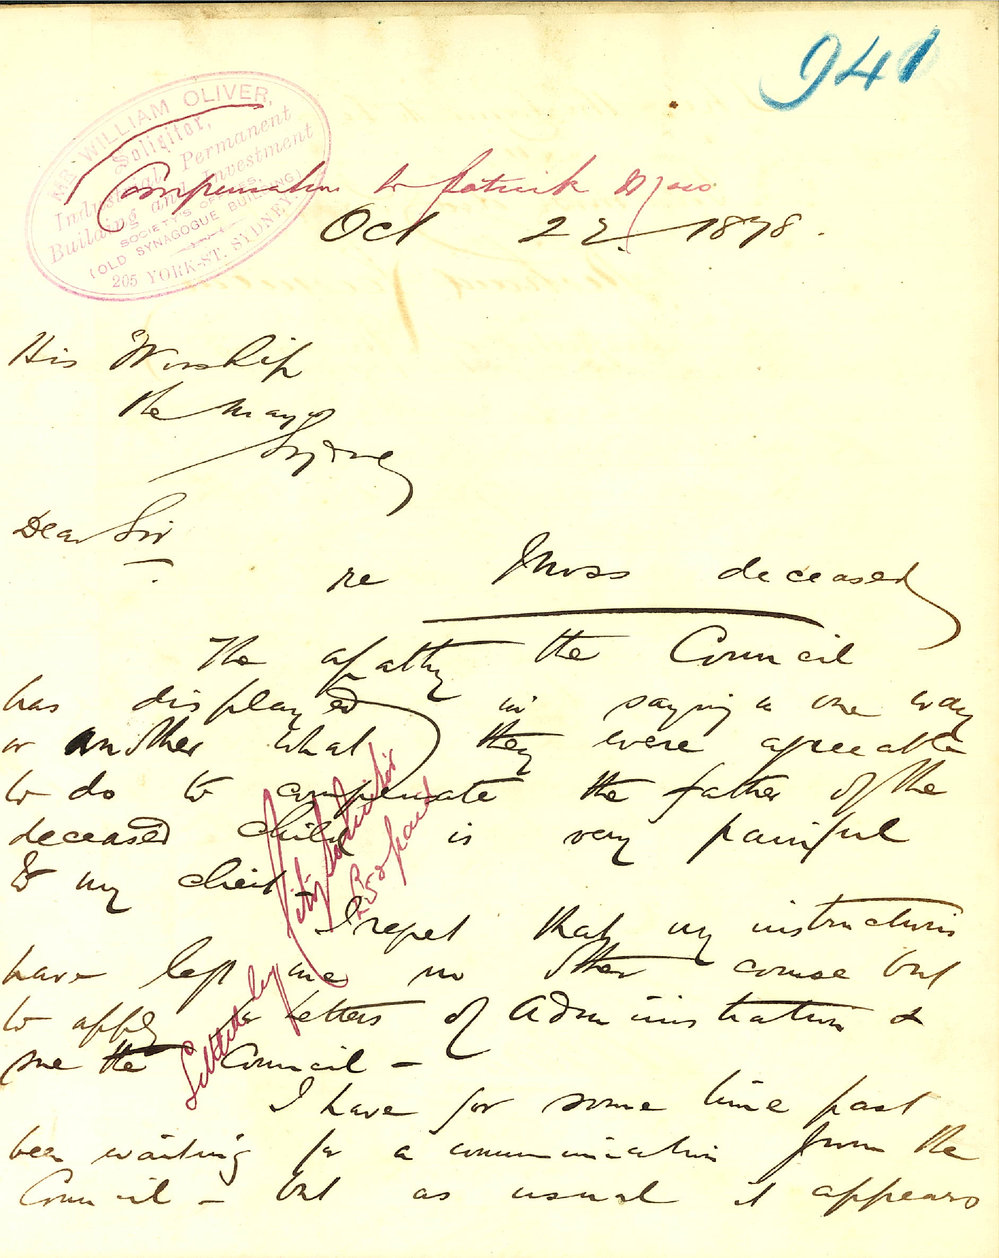 941
MR. WILLIAM OLIVER,
Solicitor,
Industrial Permanent
Building and Investment
SOCIETY'S OFFICES,
(OLD SYNAGOGUE BUILDING)
205 YORK-ST. SYDNEY.
Compensation to Patrick Moss
Oct 22 1878.
His Worship
The Mayor
Sydney
Dear Sir
re Moss deceased
The apathy the Council
has displayed in saying in one way
or another what they were agreeable
to do to compensate the father of the
deceased child is very painful
to my client
I regret that my instructions
have left me no other course but
to apply for Letters of Administration &
sue the Council -
I have for some time past
been waiting for a communication from the
Council - but as usual it appears
Settled by City Solicitor
£52 paid